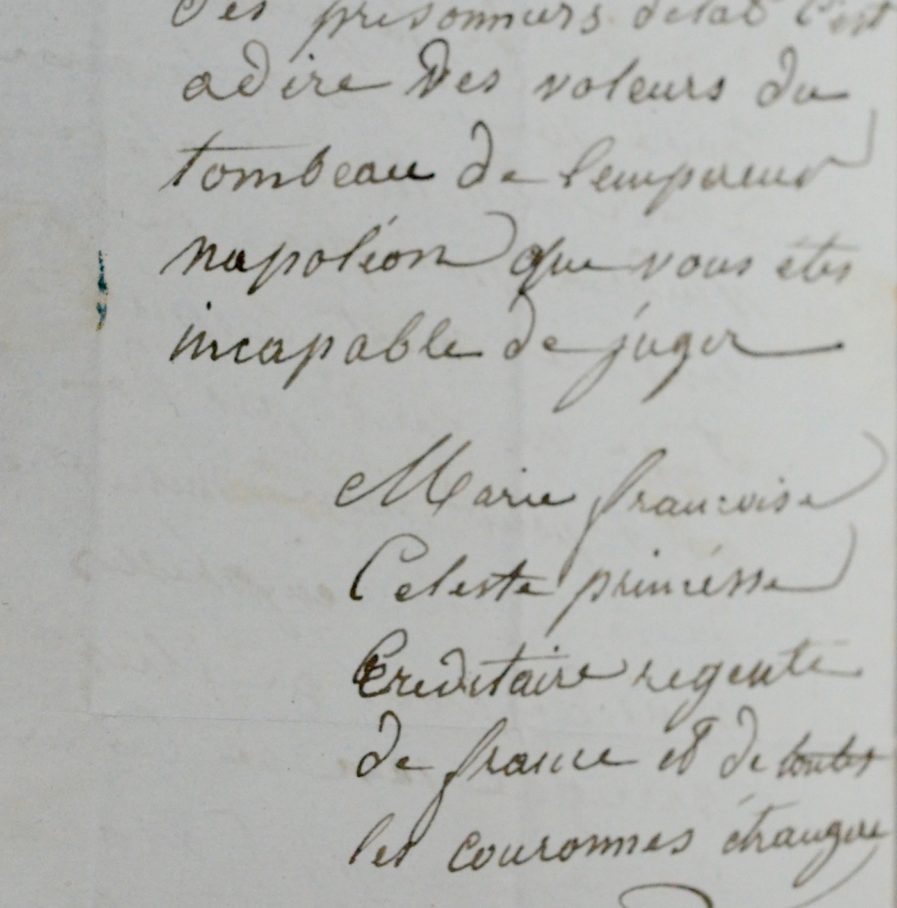 des prisonniers détat C'est
adire Des voleurs du
tombeau de lempereur
napoléon que vous étes
incapable de juger
Marie francoise
Celeste princésse
Ereditaire regente
de france et de toutes
les couronnes étrangere